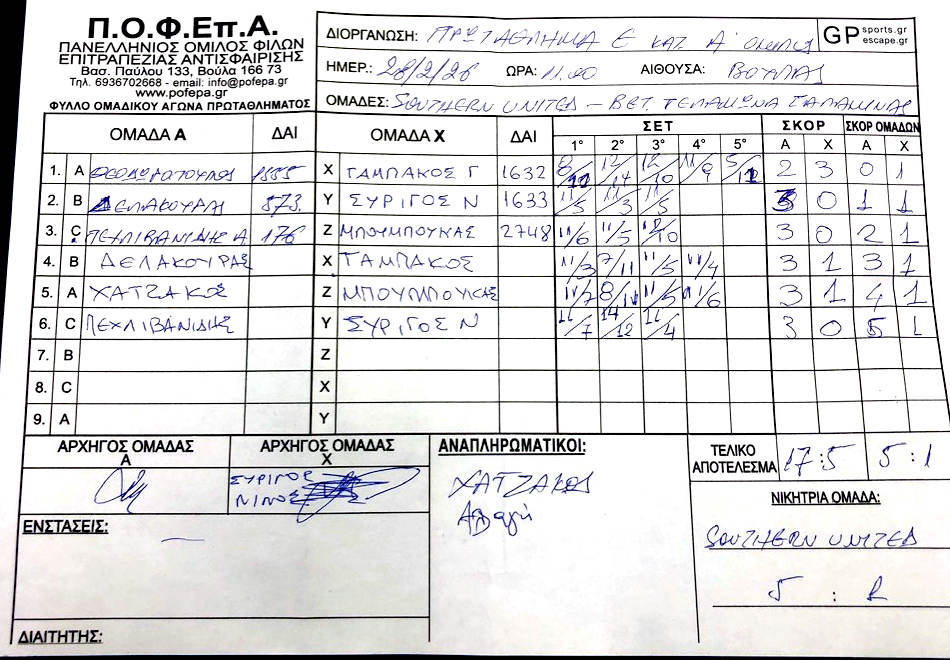 Π.Ο.Φ.Επ.Α.
ΠΑΝΕΛΛΗΝΙΟΣ ΟΜΙΛΟΣ ΦΙΛΩΝ
ΕΠΙΤΡΑΠΕΖΙΑΣ ΑΝΤΙΣΦΑΙΡΙΣΗΣ
Βασ. Παύλου 133, Βούλα 166 73
Τηλ. 6936702668 - email: info@pofepa.gr
www.pofepa.gr
ΦΥΛΛΟ ΟΜΑΔΙΚΟΥ ΑΓΩΝΑ ΠΡΩΤΑΘΛΗΜΑΤΟΣ
ΔΙΟΡΓΑΝΩΣΗ: ΠΡΩΤΑΘΛΗΜΑ Ε ΚΑΤ. Α΄ ΟΜΙΛΟΣ
GP sports.gr escape.gr
ΗΜΕΡ.: 28/2/26 ΩΡΑ: 11.00 ΑΙΘΟΥΣΑ: ΒΟΥΛΑΣ
ΟΜΑΔΕΣ: SOUTHERN UNITED – ΒΕΤ. ΤΕΛΑΜΩΝΑ ΣΑΛΑΜΙΝΑΣ
ΟΜΑΔΑ Α ΔΑΙ ΟΜΑΔΑ Χ ΔΑΙ ΣΕΤ ΣΚΟΡ ΣΚΟΡ ΟΜΑΔΩΝ
1° 2° 3° 4° 5° Α Χ Α Χ
1. A X ΤΑΜΠΑΚΟΣ Γ 1632 12/14 12/10 11/9 2 3 0 1
2. B 873. Y ΣΥΡΙΓΟΣ Ν 1633 11/5 11/3 11/5 3 0 1 1
3. C ΠΕΧΛΙΒΑΝΙΔΗΣ Α 176 Z ΜΠΟΥΜΠΟΥΚΑΣ 2748 11/6 11/5 12/10 3 0 2 1
4. B ΔΕΛΑΚΟΥΡΑΣ X ΤΑΜΠΑΚΟΣ 11/3 7/11 11/5 11/4 3 1 3 1
5. A ΧΑΤΖΑΚΟΣ Z ΜΠΟΥΜΠΟΥΚΑΣ 11/7 8/11 11/5 11/6 3 1 4 1
6. C ΠΕΧΛΙΒΑΝΙΔΗΣ Y ΣΥΡΙΓΟΣ Ν 11/7 14/12 11/4 3 0 5 1
7. B Z
8. C X
9. A Y
ΑΡΧΗΓΟΣ ΟΜΑΔΑΣ Α
ΑΡΧΗΓΟΣ ΟΜΑΔΑΣ Χ
ΣΥΡΙΓΟΣ
ΝΙΝΟΣ
ΑΝΑΠΛΗΡΩΜΑΤΙΚΟΙ:
ΧΑΤΖΑΚΟΣ
Αλλαγή
ΤΕΛΙΚΟ ΑΠΟΤΕΛΕΣΜΑ 17:5 5:1
ΝΙΚΗΤΡΙΑ ΟΜΑΔΑ:
SOUTHERN UNITED
5 : 1
ΕΝΣΤΑΣΕΙΣ:
—
ΔΙΑΙΤΗΤΗΣ: